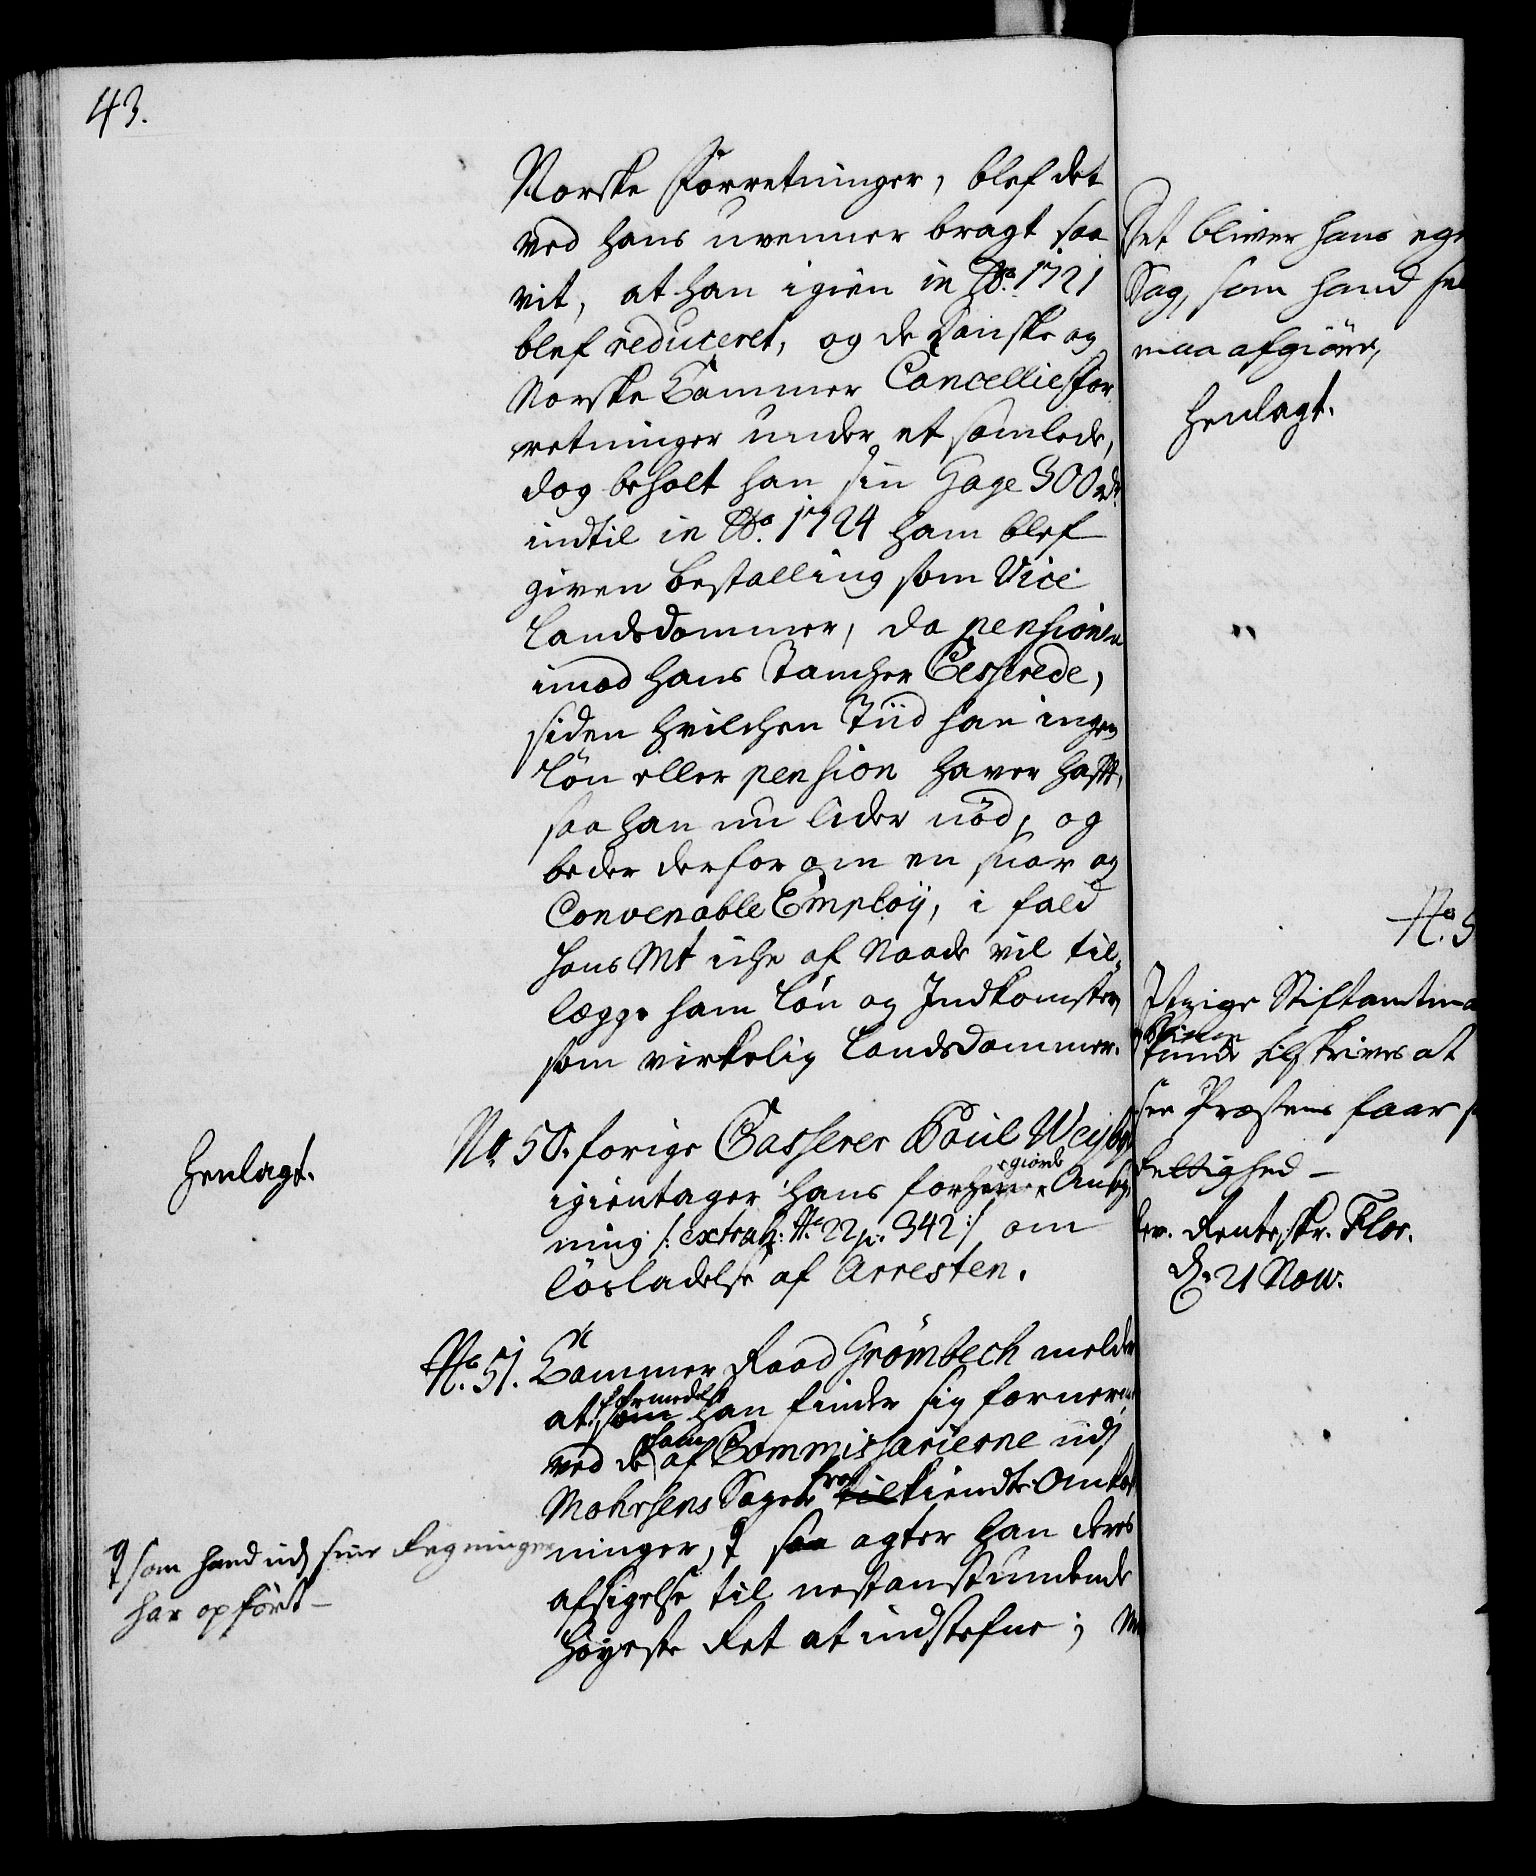 43.
Norske Forretninger, blef det
ved hans uvenner bragt saa
vit, at han igien in Ao. 1721
blef reduceret, og de Danske og
Norske Cammer Cancellie for
retninger under et samlede,
dog beholt han sin Gage 300 rdr.
indtil in Ao. 1724 ham blef
given bestalling som Vice
Landsdommer, da pensionen
imod hans Tancher Cesserede,
siden hvilchen Tiid han ingen
Løn eller pension haver hafft,
saa han nu lider nød, og
beder derfor om en snar og
Convenable Employ, i fald
Hans Mt iche af Naade vil til„
lægge ham Løn og Indkomster,
som virkelig Landsdommer.
Henlagt.
No. 50. forige Casserer Poul Weybye
igientager hans forhen giorde Ansøg„
ning /: extrah: No. 22 p. 342 :/ om
løsladelse af Arresten.
No. 51. Cammer Raad Grømbech melder
at formedelst som han finder sig fornermet
ved de ham af Commissarierne udj
Mohrsens Sag er fra til kiendte Ankost
ninger, saa agter han deres
afsigelse til nestanstundende
Høyeste Ret at indstefne;
som hand udj sine Regninger
har opført –
Det bliver hans egen
Sag, som hand
maa afgiøre,
Henlagt.
No. 5
Itzige Stiftamtm
kunde tilskrives at
see Præstens faar
Rettighed –
Renteskr. Flor.
d. 21 Nov.